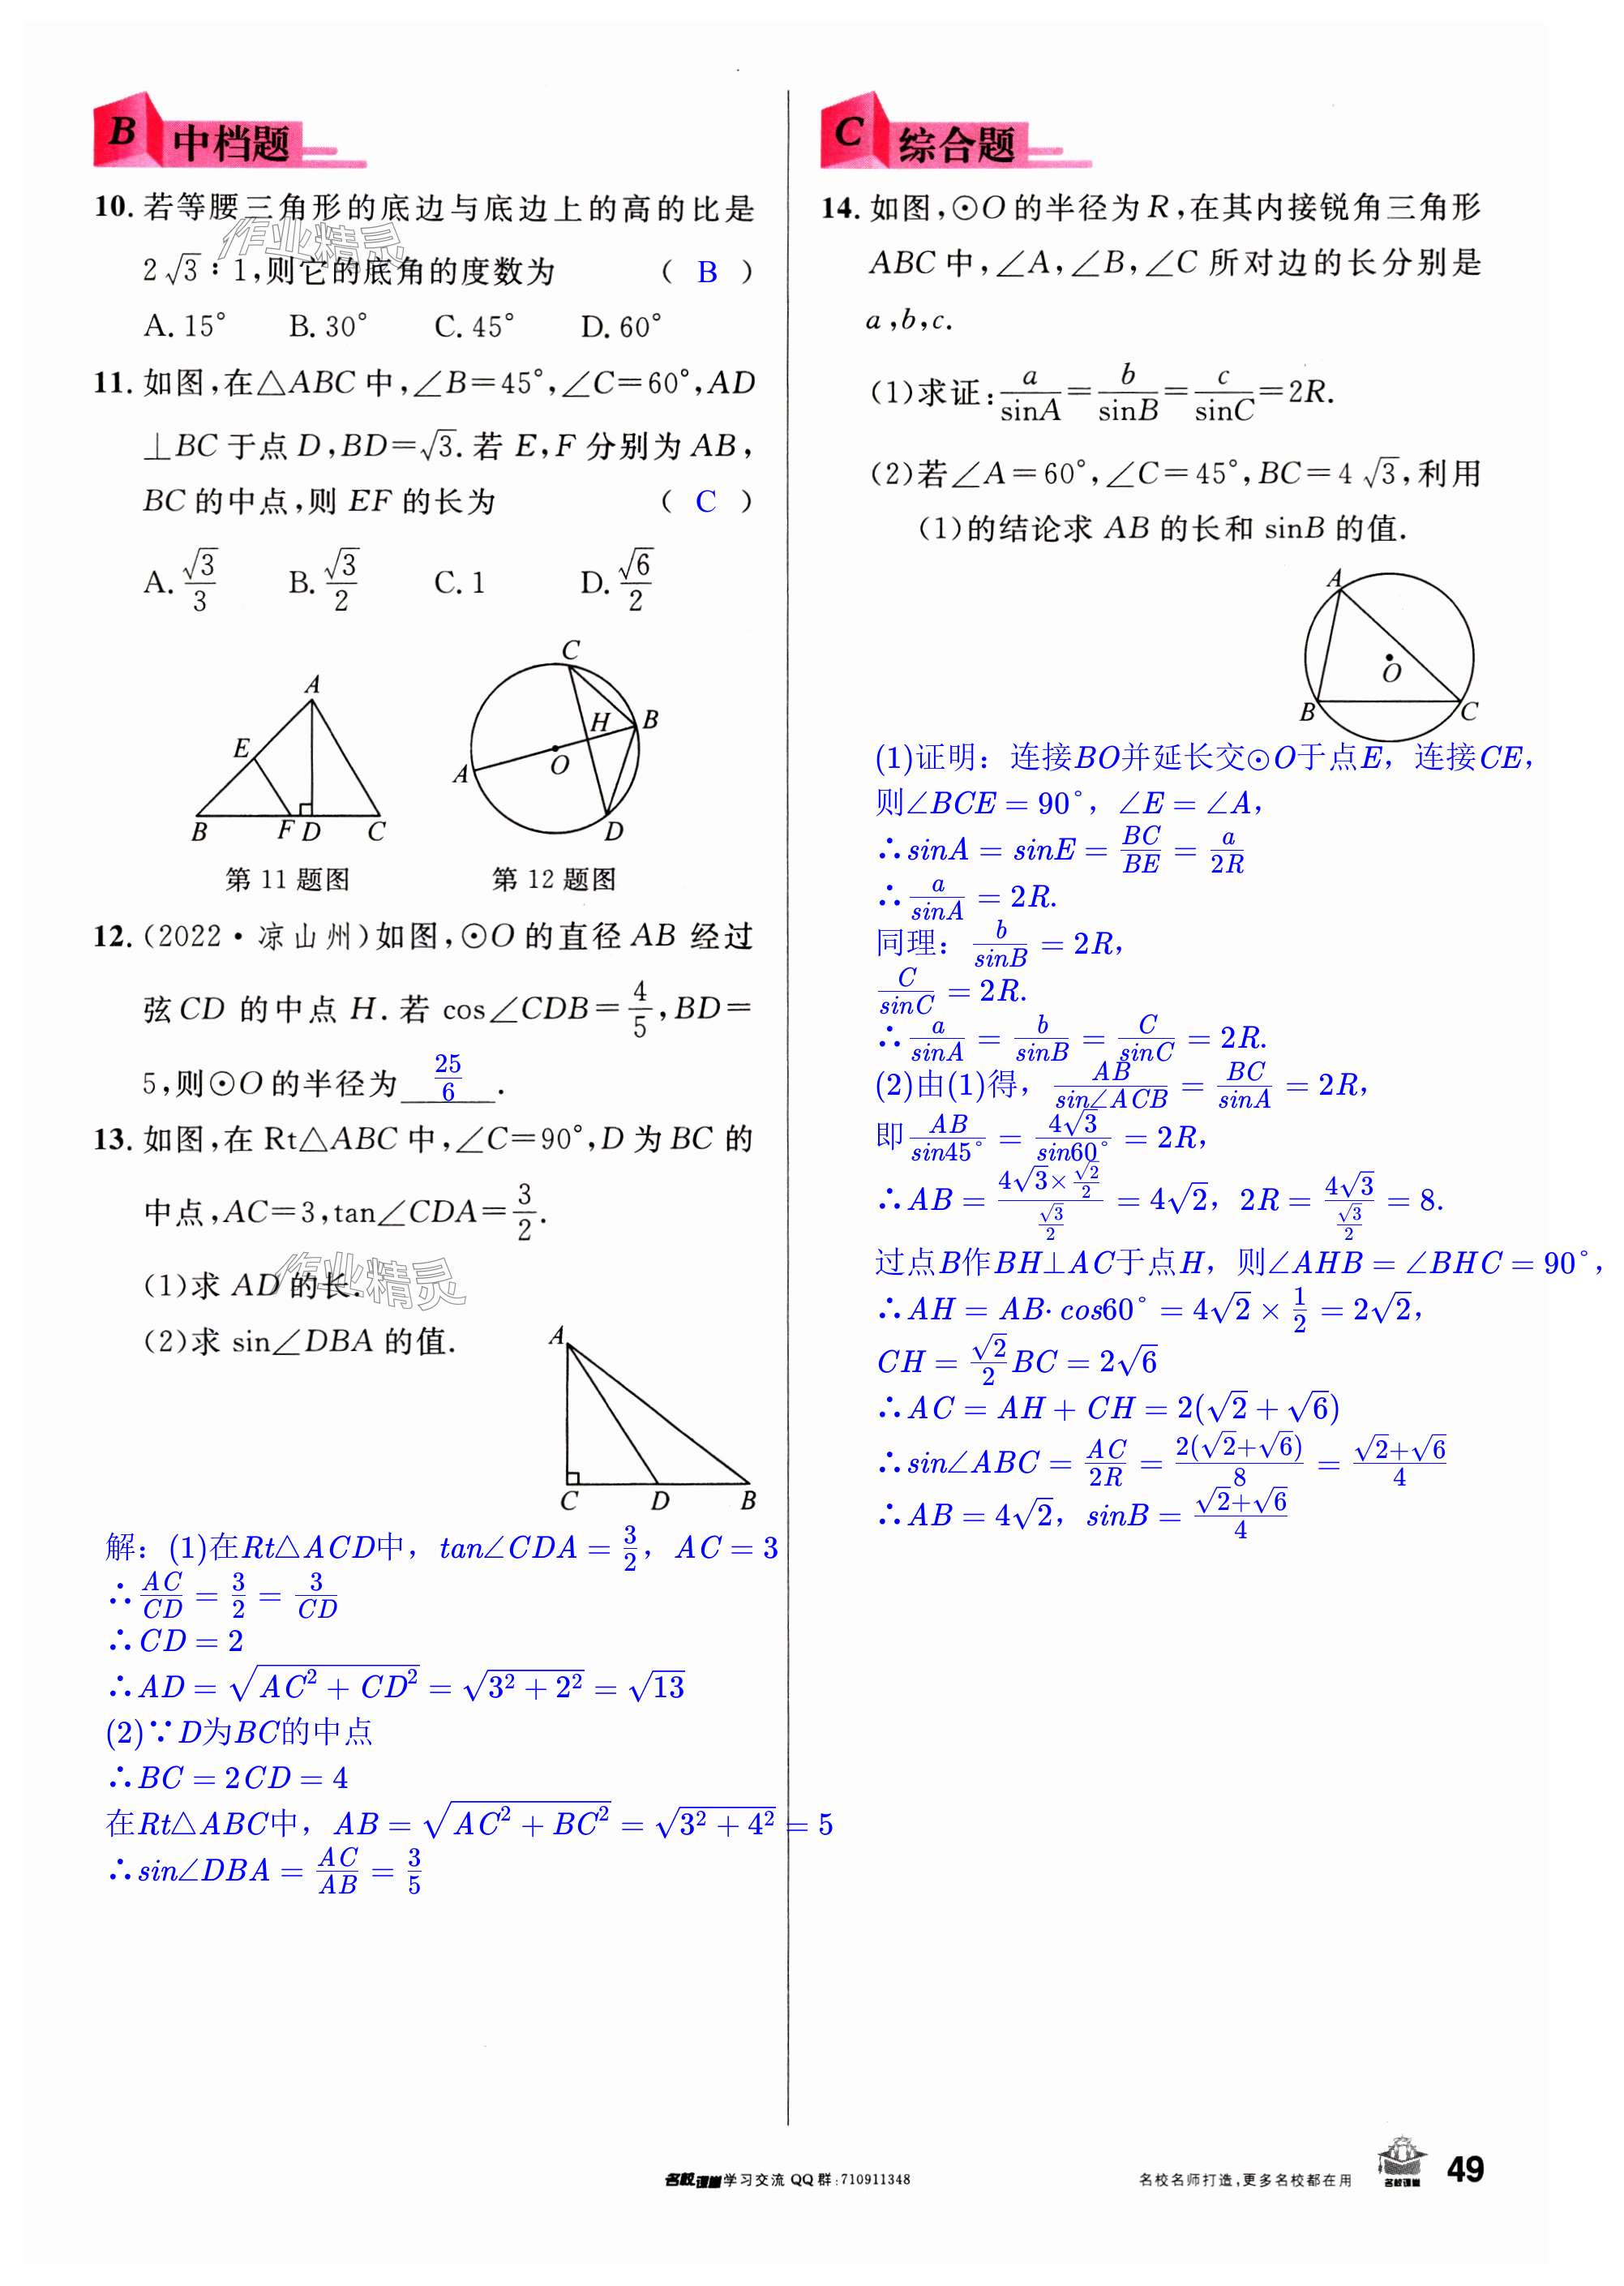 B 中档题
10. 若等腰三角形的底边与底边上的高的比是
2√3∶1,则它的底角的度数为 ( B )
A. 15° B. 30° C. 45° D. 60°
11. 如图,在△ABC 中,∠B=45°,∠C=60°,AD
⊥BC 于点 D,BD=√3. 若 E,F 分别为 AB,
BC 的中点,则 EF 的长为 ( C )
A. √3/3 B. √3/2 C. 1 D. √6/2
A
E
B F D C
第 11 题图
C
H B
O
A
D
第 12 题图
12. (2022·凉山州)如图,⊙O 的直径 AB 经过
弦 CD 的中点 H. 若 cos∠CDB=4/5,BD=
5,则⊙O 的半径为 25/6 .
13. 如图,在 Rt△ABC 中,∠C=90°,D 为 BC 的
中点,AC=3,tan∠CDA=3/2.
(1)求 AD 的长.
(2)求 sin∠DBA 的值.
A
C D B
解：(1)在Rt△ACD中，tan∠CDA=3/2，AC=3
∴AC/CD=3/2=3/CD
∴CD=2
∴AD=√(AC²+CD²)=√(3²+2²)=√13
(2)∵D为BC的中点
∴BC=2CD=4
在Rt△ABC中，AB=√(AC²+BC²)=√(3²+4²)=5
∴sin∠DBA=AC/AB=3/5
C 综合题
14. 如图,⊙O 的半径为 R,在其内接锐角三角形
ABC 中,∠A,∠B,∠C 所对边的长分别是
a,b,c.
(1)求证:a/sinA=b/sinB=c/sinC=2R.
(2)若∠A=60°,∠C=45°,BC=4√3,利用
(1)的结论求 AB 的长和 sinB 的值.
A
O
B C
(1)证明：连接BO并延长交⊙O于点E，连接CE，
则∠BCE=90°，∠E=∠A，
∴sinA=sinE=BC/BE=a/2R
∴a/sinA=2R.
同理：b/sinB=2R，
C/sinC=2R.
∴a/sinA=b/sinB=C/sinC=2R.
(2)由(1)得，AB/sin∠ACB=BC/sinA=2R，
即AB/sin45°=4√3/sin60°=2R，
∴AB=(4√3×√2/2)/(√3/2)=4√2，2R=4√3/(√3/2)=8.
过点B作BH⊥AC于点H，则∠AHB=∠BHC=90°，
∴AH=AB·cos60°=4√2×1/2=2√2，
CH=√2/2BC=2√6
∴AC=AH+CH=2(√2+√6)
∴sin∠ABC=AC/2R=2(√2+√6)/8=(√2+√6)/4
∴AB=4√2，sinB=(√2+√6)/4
作业精灵
作业精灵
名校课堂 学习交流 QQ 群:710911348
名校名师打造,更多名校都在用
名校课堂
49